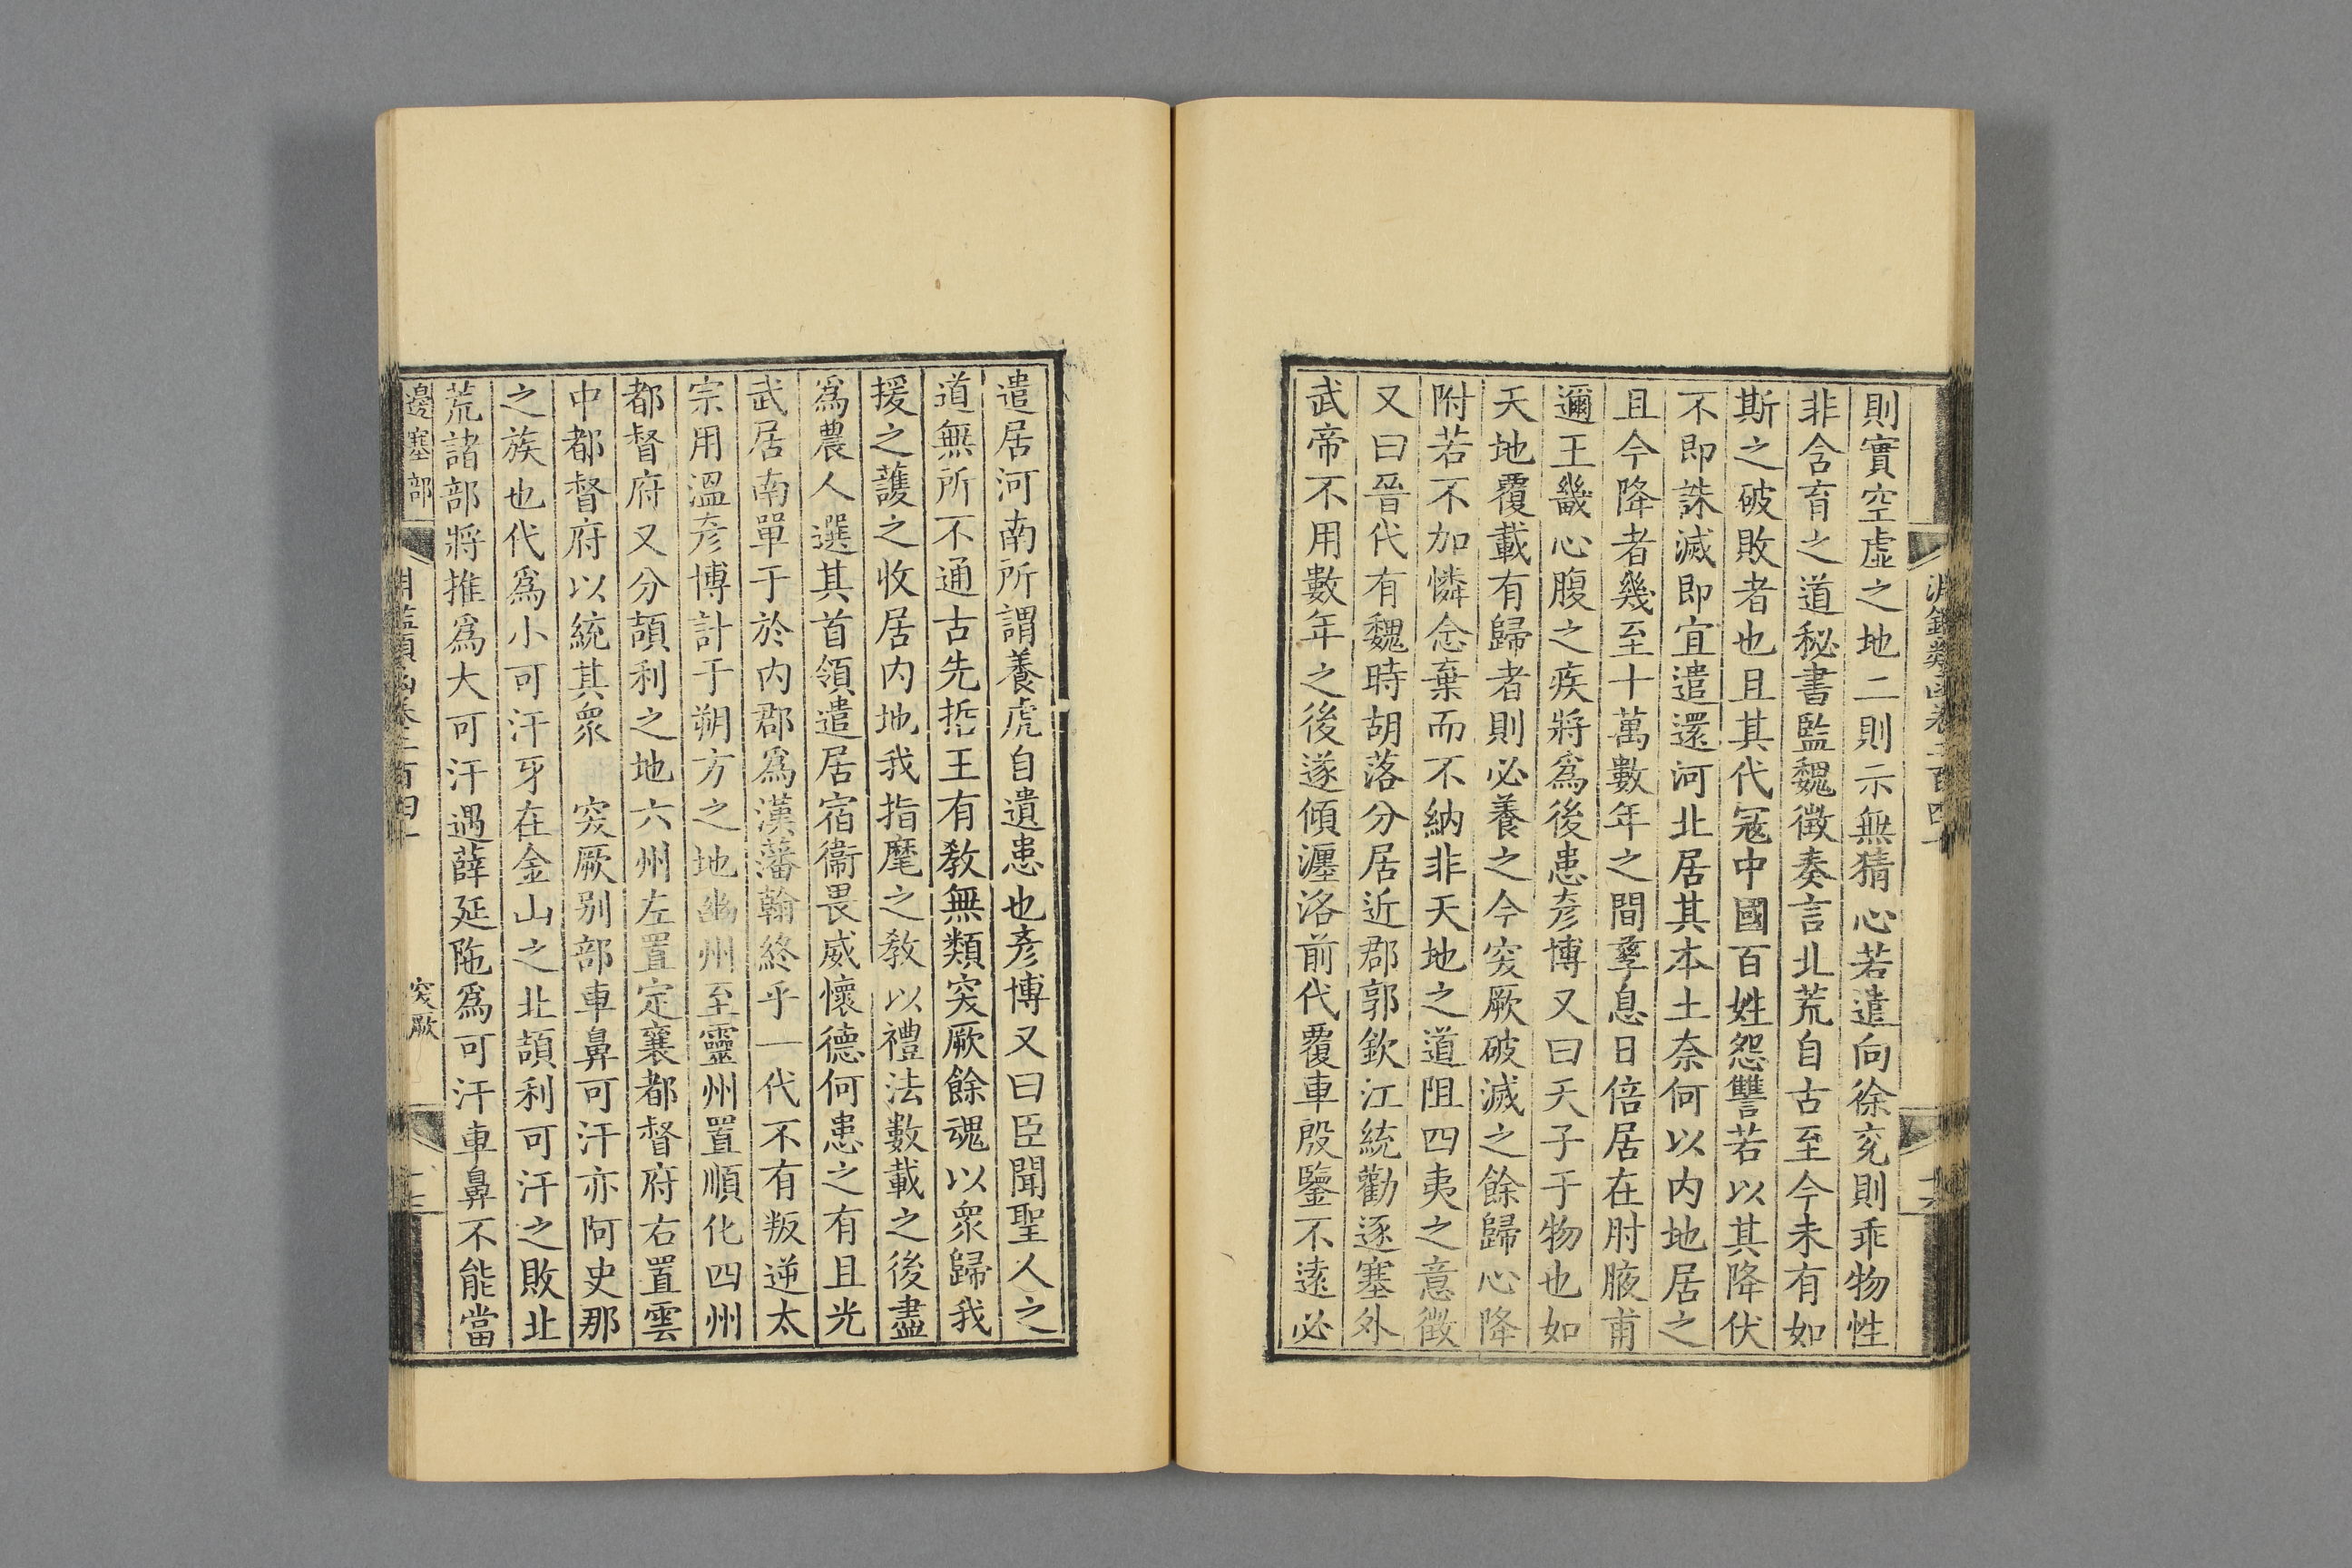 則實空虛之地二則示無猜心若遣向徐兖則乖物性
非含育之道秘書監魏徵奏言北荒自古至今未有如
斯之破敗者也且其代冦中國百姓怨讐若以其降伏
不即誅滅即宜遣還河北居其本土奈何以内地居之
且今降者幾至十萬數年之間孳息日倍居在肘腋甫
邇王畿心腹之疾將爲後患彥博又曰天子于物也如
天地覆載有歸者則必養之今突厥破滅之餘歸心降
附若不加憐念棄而不納非天地之道阻四夷之意徵
又曰晉代有魏時胡落分居近郡郭欽江統勸逐塞外
武帝不用數年之後遂傾瀍洛前代覆車殷鑒不遠必
淵鑑類函卷二百四十
遣居河南所謂養虎自遺患也彥博又曰臣聞聖人之
道無所不通古先哲王有教無類突厥餘魂以衆歸我
援之護之收居内地我指麾之教以禮法數載之後盡
爲農人選其首領遣居宿衞畏威懷德何患之有且光
武居南單于於内郡爲漢藩翰終乎一代不有叛逆太
宗用溫彥博計于朔方之地幽州至靈州置順化四州
都督府又分頡利之地六州左置定襄都督府右置雲
中都督府以統其衆 突厥别部車鼻可汗亦阿史那
之族也代爲小可汗牙在金山之北頡利可汗之敗北
荒諸部將推爲大可汗遇薛延陁爲可汗車鼻不能當
邊塞部
突厥